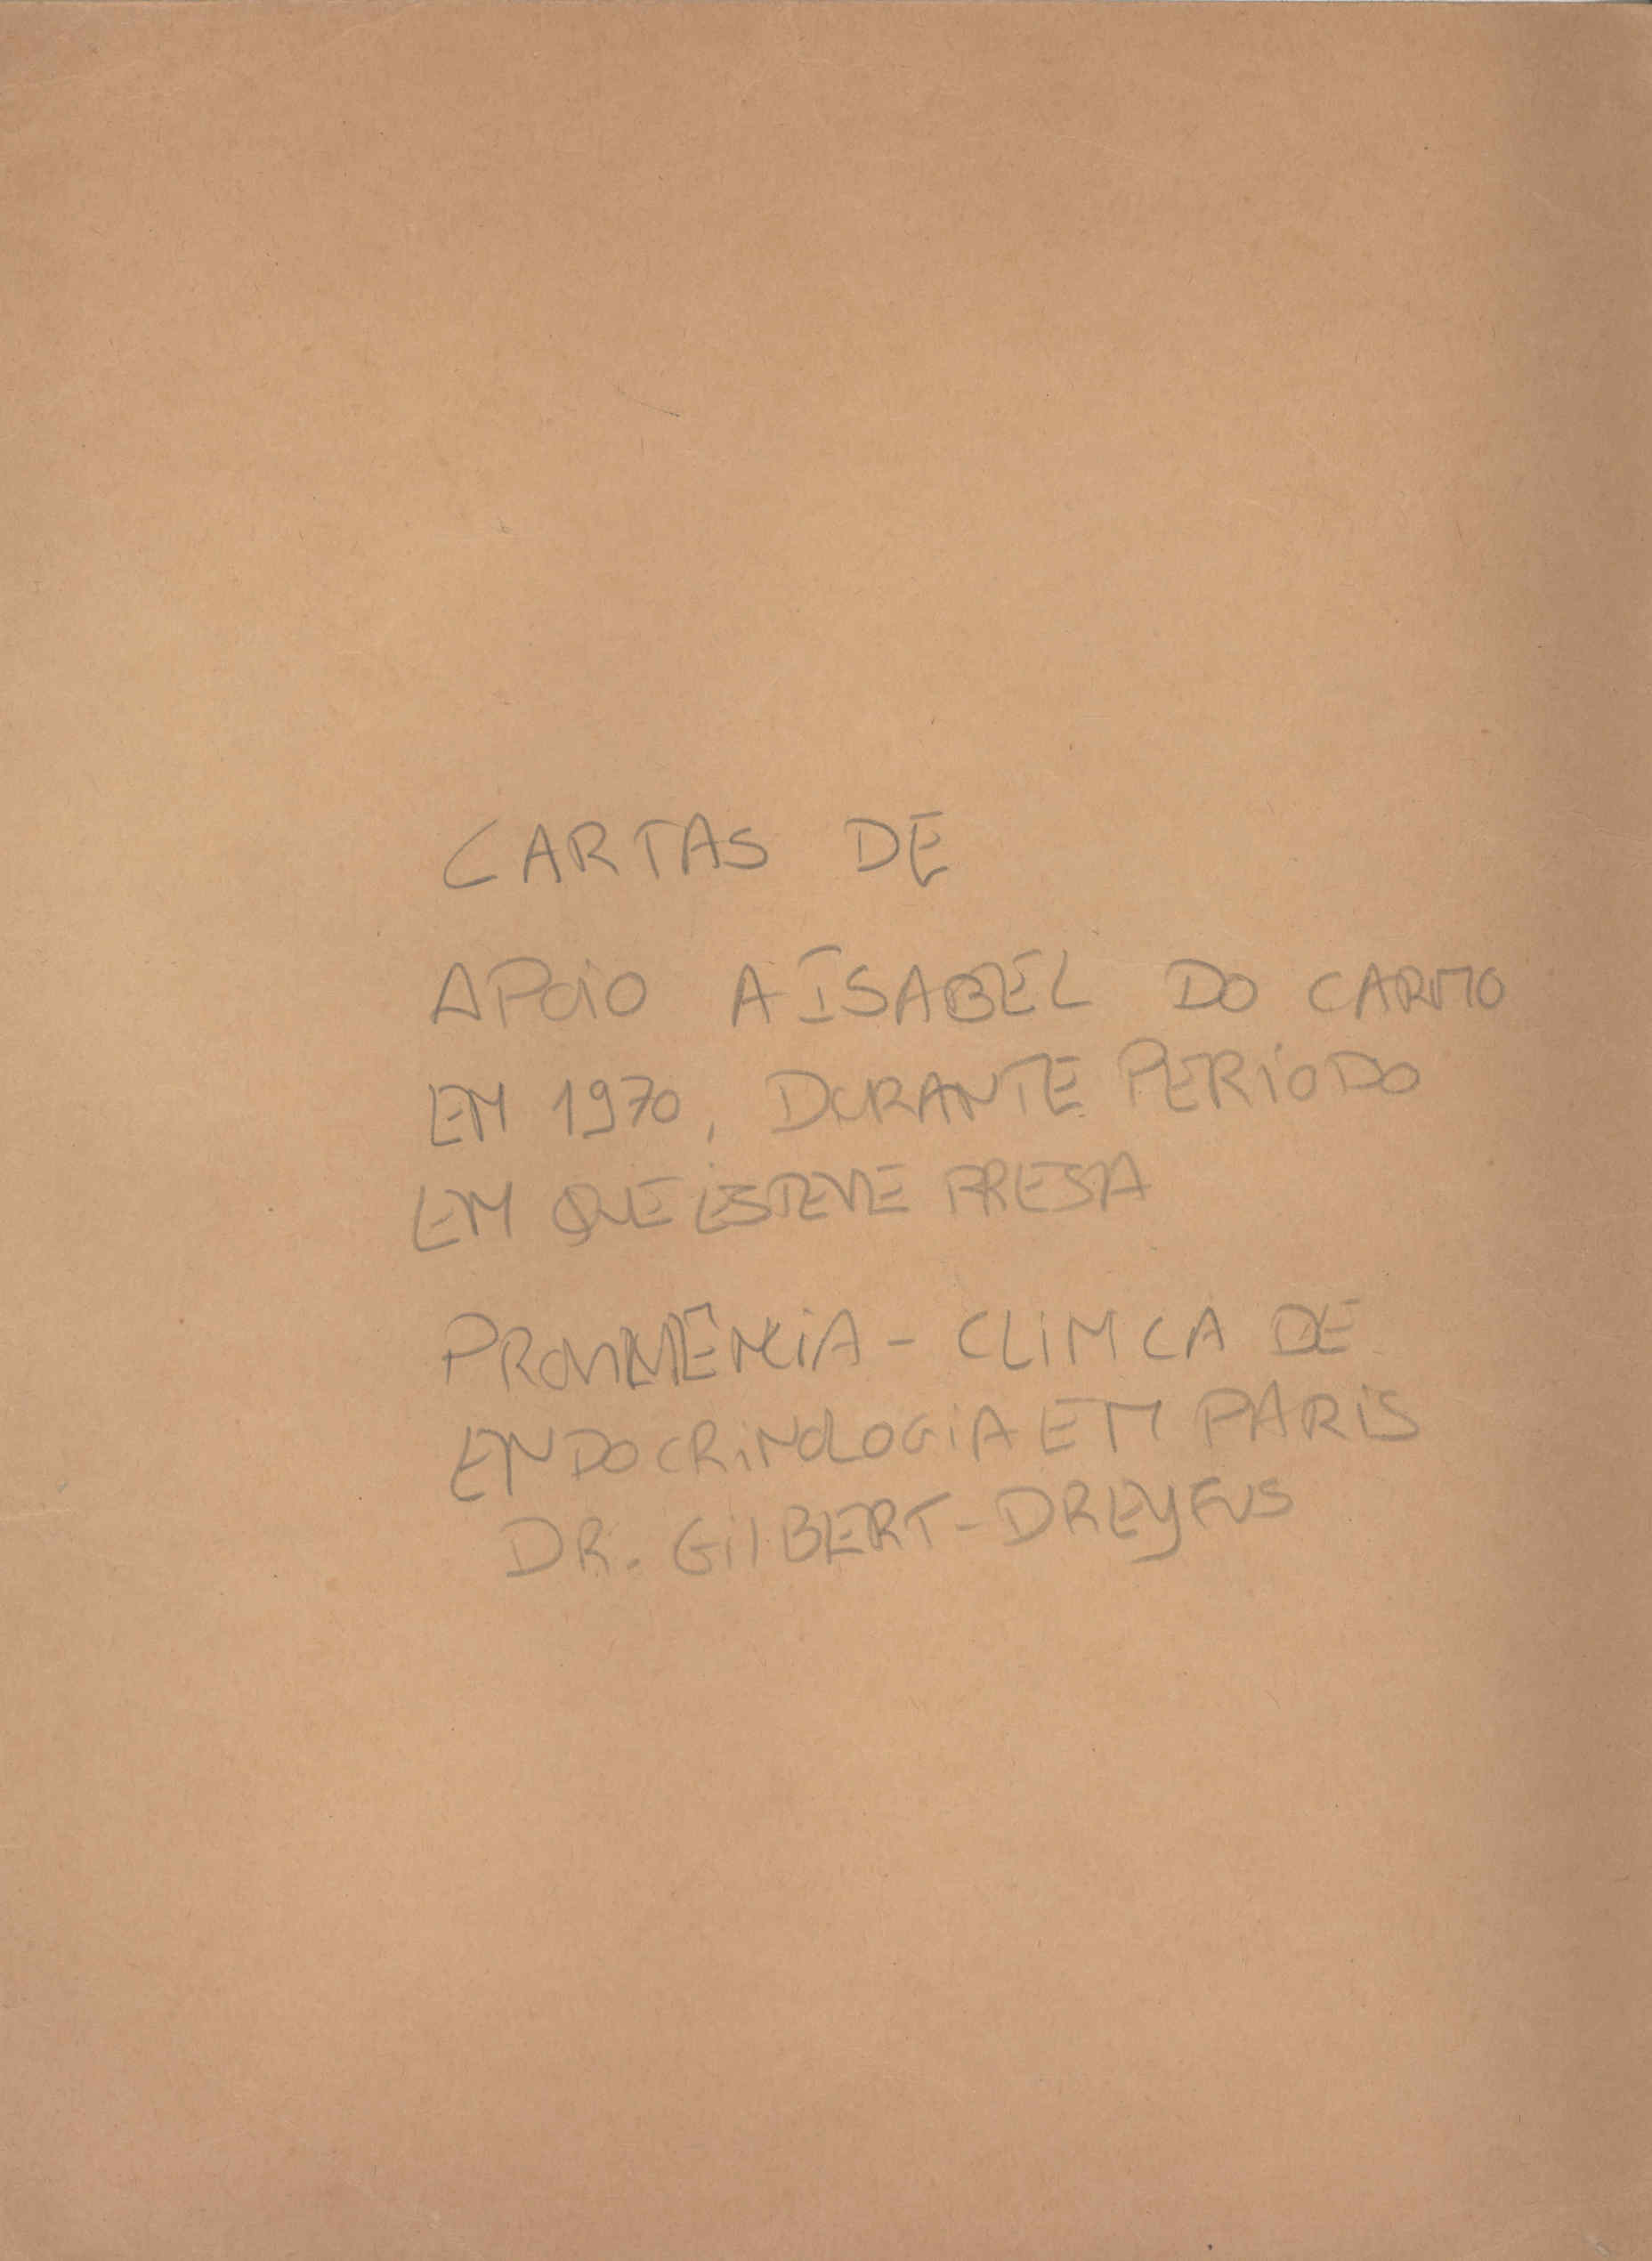 CARTAS DE
APOIO A ISABEL DO CARMO
EM 1970, DURANTE PERÍODO
EM QUE ESTEVE PRESA
PROVENIÊNCIA - CLINICA DE
ENDOCRINOLOGIA EM PARIS
DR. GILBERT-DREYFUS